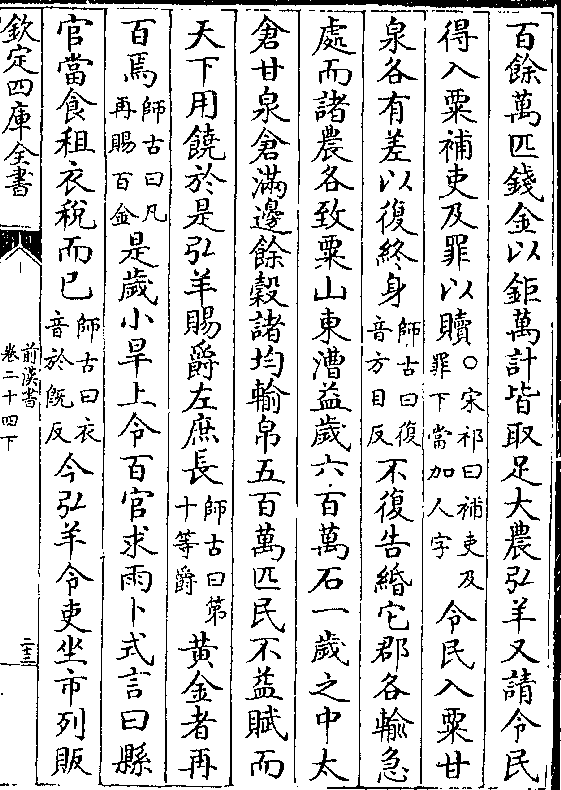 百餘萬匹錢金以鉅萬計皆取足大農弘羊又請令民
得入粟補吏及罪以贖○宋祁曰補吏及罪下當加人字令民入粟甘
泉各有差以復終身師古曰復音方目反不復告緡它郡各輸急
處而諸農各致粟山東漕益歲六百萬石一歲之中太
倉甘泉倉滿邊餘穀諸均輸帛五百萬匹民不益賦而
天下用饒於是弘羊賜爵左庶長師古曰第十等爵黃金者再
百焉師古曰凡再賜百金是歲小旱上令百官求雨卜式言曰縣
官當食租衣稅而已師古曰衣音於既反今弘羊令吏坐市列販
欽定四庫全書
前漢書
卷二十四下
二十三